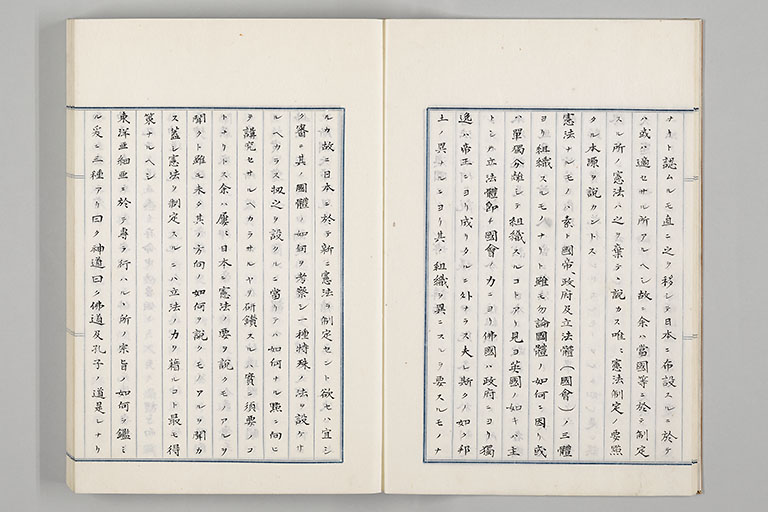 ナリト認ムルモ直ニ之ヲ移シテ日本ニ布設スルニ於テ
ハ或ハ適セサル所アルヘシ故ニ余ハ當國等ニ於テ制定
スル所ノ憲法ハ之ヲ棄テヽ説カス唯ニ憲法制定ノ要照
クル本源ヲ説カントス
憲法ナルモノハ素ト國帝、政府及立法體(國會)ノ三體
ヨリ組織スルモノナリト雖モ勿論國體ノ如何ニ因リ或
ハ單獨分離シテ組織スルコトアリ見ヨ英國ノ如キハ主
トシテ立法體即チ國會ノ力ニヨリ佛國ハ政府ニヨリ獨
逸ハ帝王ニヨリ成リタルニ外ナラス夫レ斯クノ如ク邦
土ノ異ナルニヨリ其ノ組織ヲ異ニスルヲ要スルモノナ
ルカ故ニ日本ニ於テ新ニ憲法ヲ制定セント欲セハ宜シ
ク審ニ其ノ國體ノ如何ヲ考察シ一種特殊ノ法ヲ設ケサ
ルヘカラス扨之ヲ設クルニ當リテハ如何ナル點ニ向ヒ
テ講究セサルヘカラサルヤヲ研鑽スルハ實ニ須要ノコ
トナリトス余ハ屢〻日本ニ憲法ノ要ヲ説クモノアルヲ
聞クト雖ル未タ其ノ方向ノ如何ヲ説クモノアルヲ聞カ
ス蓋シ憲法ヲ制定スルニハ立法ノ力ヲ藉ルコト最モ得
策ナルヘシ
東洋亜細亜ニ於テ專ラ行ハルヽ所ノ宗旨ノ如何ヲ鑑ミ
ル爰ニ三種アリ曰ク神道曰ク佛道及孔子ノ道是レナリ